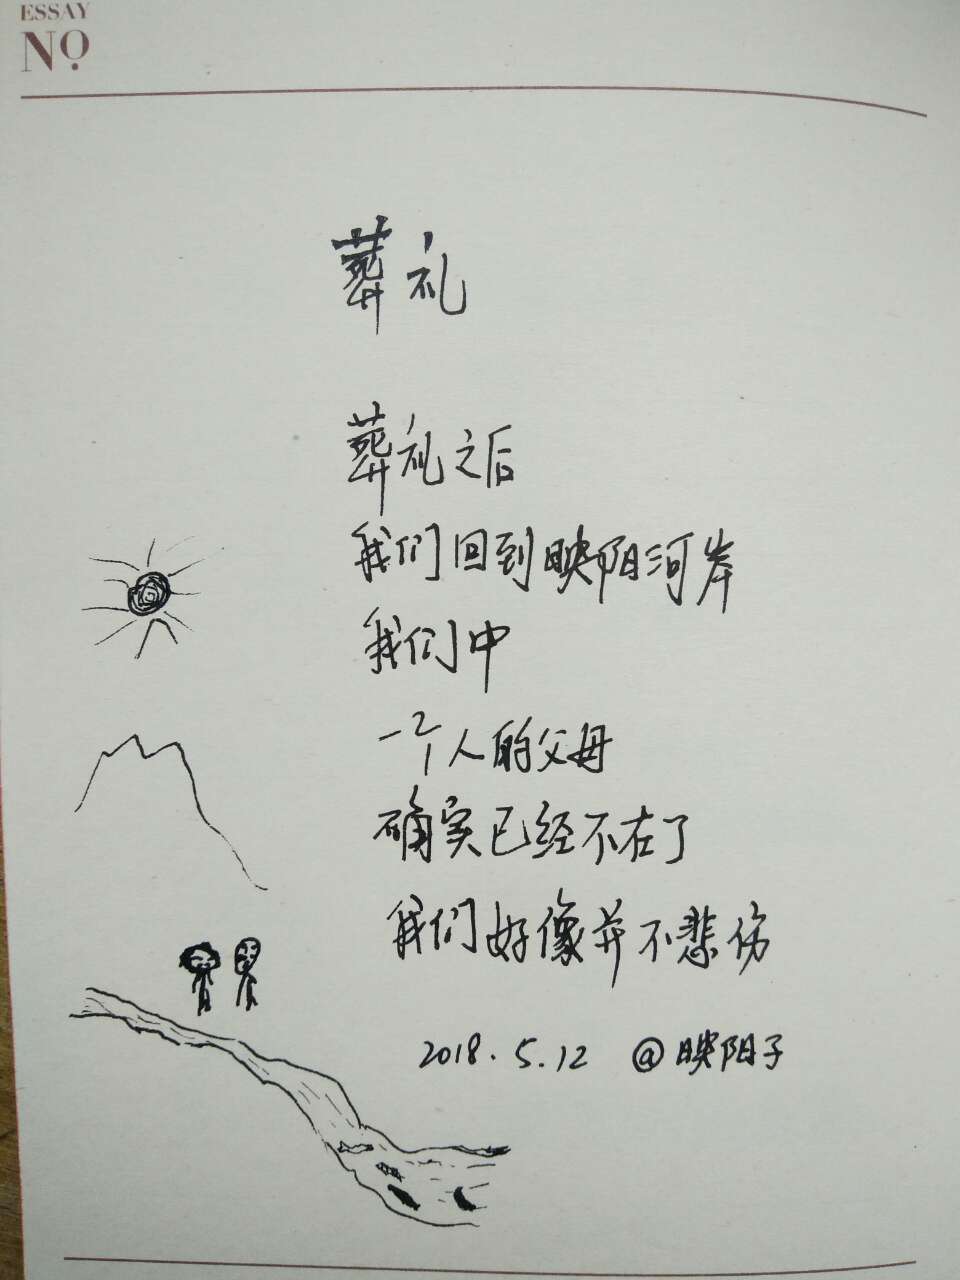 ESSAY
NO.
葬礼
葬礼之后
我们回到映阳河岸
我们中
一个人的父母
确实已经不在了
我们好像并不悲伤
2018.5.12 @映阳子